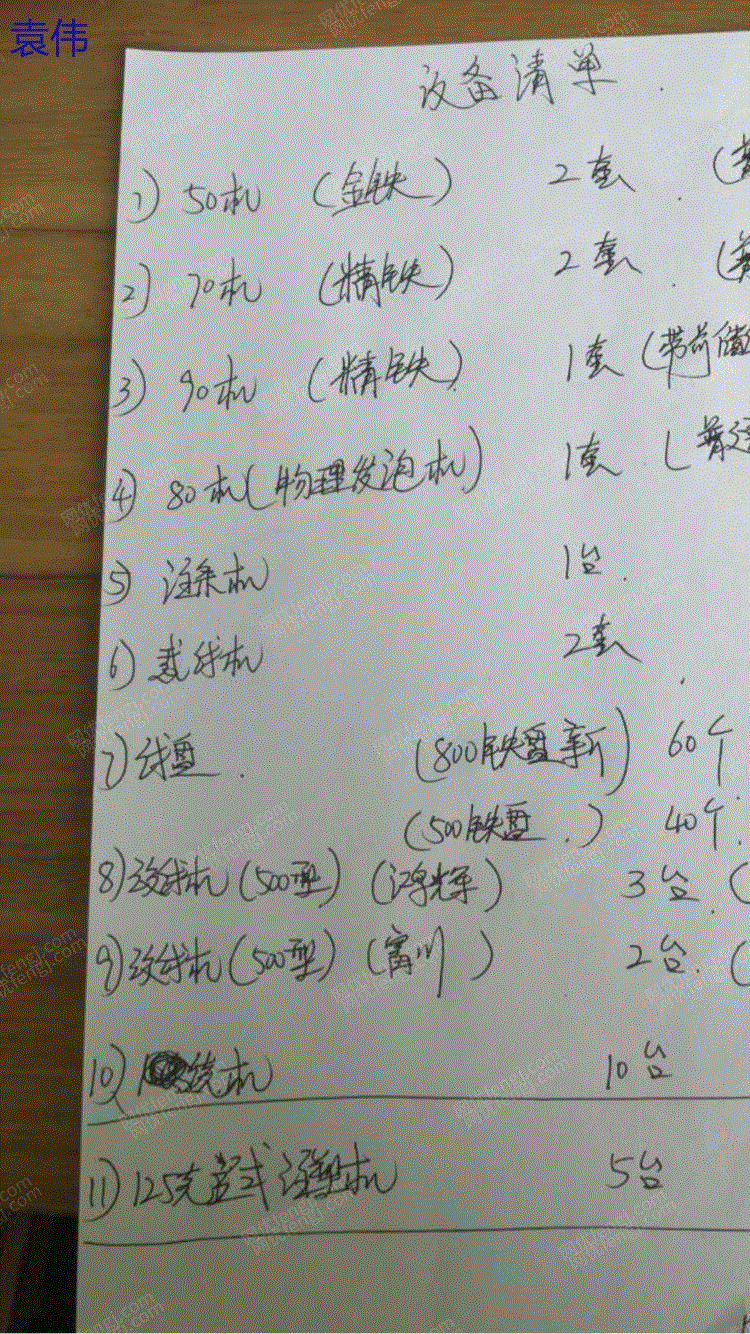 袁伟
设备清单
1) 50机 (金铁) 2套 (
2) 70机 (精铁) 2套 (
3) 90机 (精铁) 1套 (带前储线
4) 80机 (物理发泡机) 1套 (普通
5) 注条机 1台
6) 裁线机 2套
7) 线盘 (800铁盘新) 60个
(500铁盘) 40个
8) 绞线机 (500型) (鸿辉) 3台 (
9) 绞线机 (500型) (富川) 2台 (
10) 绕机 10台
11) 125克立式注塑机 5台